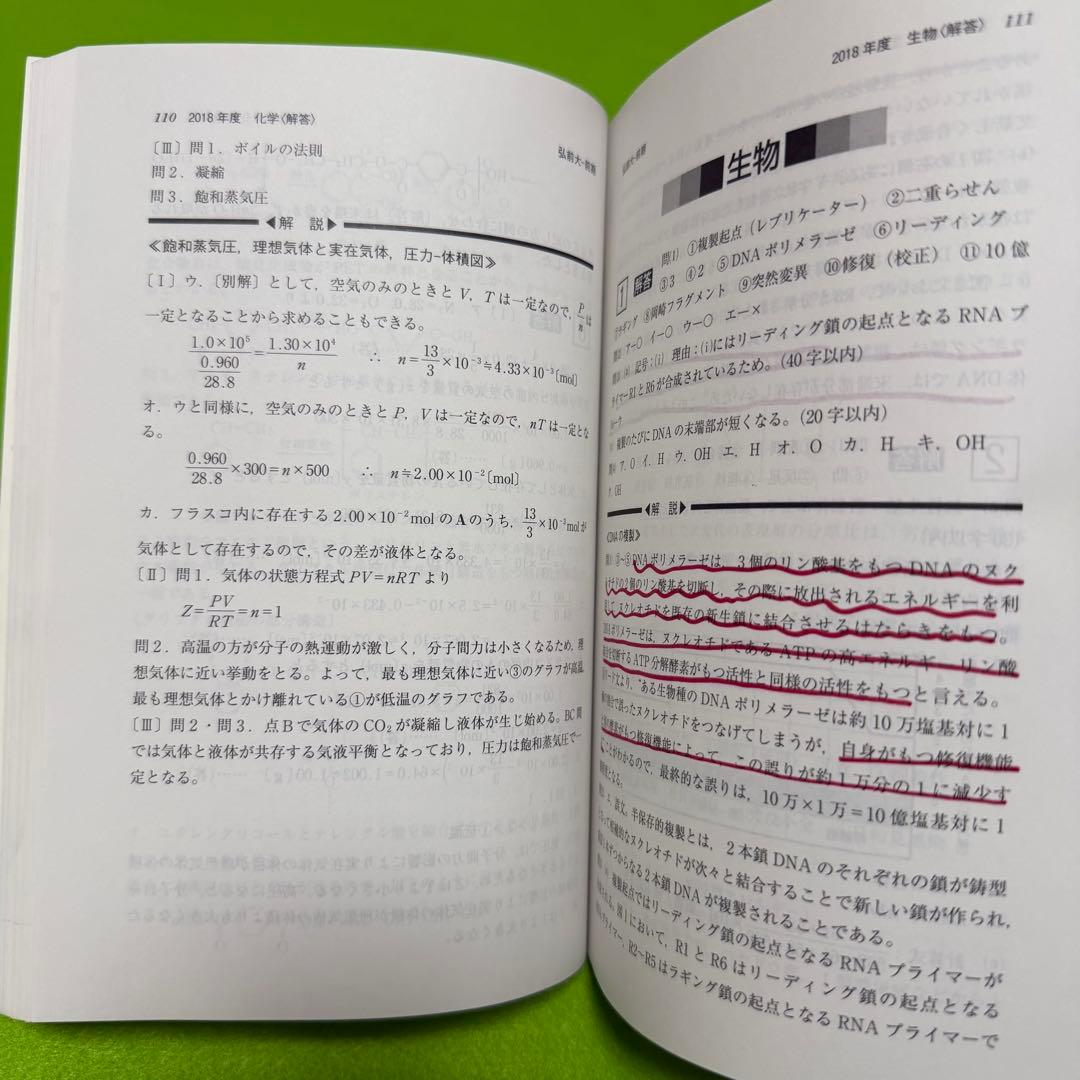 110 2018年度 化学〈解答〉
弘前大-前期
〔Ⅲ〕問1．ボイルの法則
問2．凝縮
問3．飽和蒸気圧
◀解 説▶
≪飽和蒸気圧，理想気体と実在気体，圧力–体積図≫
〔Ⅰ〕ウ．〔別解〕として，空気のみのときと V，T は一定なので，P/n は
一定となることから求めることもできる。
1.0×10⁵/(0.960/28.8)=1.30×10⁴/n ∴ n=13/3×10⁻³≒4.33×10⁻³〔mol〕
オ．ウと同様に，空気のみのときと P，V は一定なので，nT は一定とな
る。
0.960/28.8×300=n×500 ∴ n≒2.00×10⁻²〔mol〕
カ．フラスコ内に存在する 2.00×10⁻²mol の A のうち，13/3×10⁻³mol が
気体として存在するので，その差が液体となる。
〔Ⅱ〕問1．気体の状態方程式 PV=nRT より
Z=PV/RT=n=1
問2．高温の方が分子の熱運動が激しく，分子間力は小さくなるため，理
想気体に近い挙動をとる。よって，最も理想気体に近い③のグラフが高温，
最も理想気体とかけ離れている①が低温のグラフである。
〔Ⅲ〕問2・問3．点Bで気体の CO₂ が凝縮し液体が生じ始める。BC 間
では気体と液体が共存する気液平衡となっており，圧力は飽和蒸気圧で一
定となる。
2018年度 生物〈解答〉 111
弘前大-前期
生物
1 解答 問1) ①複製起点（レプリケーター） ②二重らせん
③3 ④2 ⑤DNAポリメラーゼ ⑥リーディング
⑦ラギング ⑧岡崎フラグメント ⑨突然変異 ⑩修復（校正） ⑪10億
ア—○ イ—○ ウ—○ エ—×
記号：(i) 理由：(i)にはリーディング鎖の起点となる RNA プ
ライマーR1とR6が合成されているため。(40字以内)
複製のたびにDNAの末端部が短くなる。(20字以内)
ア．O イ．H ウ．OH エ．H オ．O カ．H キ．OH
ク．OH
◀解 説▶
≪DNAの複製≫
③〜⑤DNAポリメラーゼは，3個のリン酸基をもつDNAのヌク
レオチドの2個のリン酸基を切断し，その際に放出されるエネルギーを利
用して，ヌクレオチドを既存の新生鎖に結合させるはたらきをもつ。
ポリメラーゼは，ヌクレオチドであるATPの高エネルギーリン酸
結合を切断するATP分解酵素がもつ活性と同様の活性をもつと言える。
より，“ある生物種のDNAポリメラーゼは約10万塩基対に1
誤ったヌクレオチドをつなげてしまうが，自身がもつ修復機能
がもつ修復機能によって，この誤りが約1万分の1に減少す
ことがわかるので，最終的な誤りは，10万×1万=10億塩基対に1
となる。
エ．誤文。半保存的複製とは，2本鎖DNAのそれぞれの鎖が鋳型
となって相補的なヌクレオチドが次々と結合することで新しい鎖が作られ，
ずつからなる2本鎖DNAが複製されることである。
複製起点ではリーディング鎖の起点となるRNAプライマーが
図1において，R1とR6はリーディング鎖の起点となる
プライマー，R2〜R5はラギング鎖の起点となるRNAプライマーで